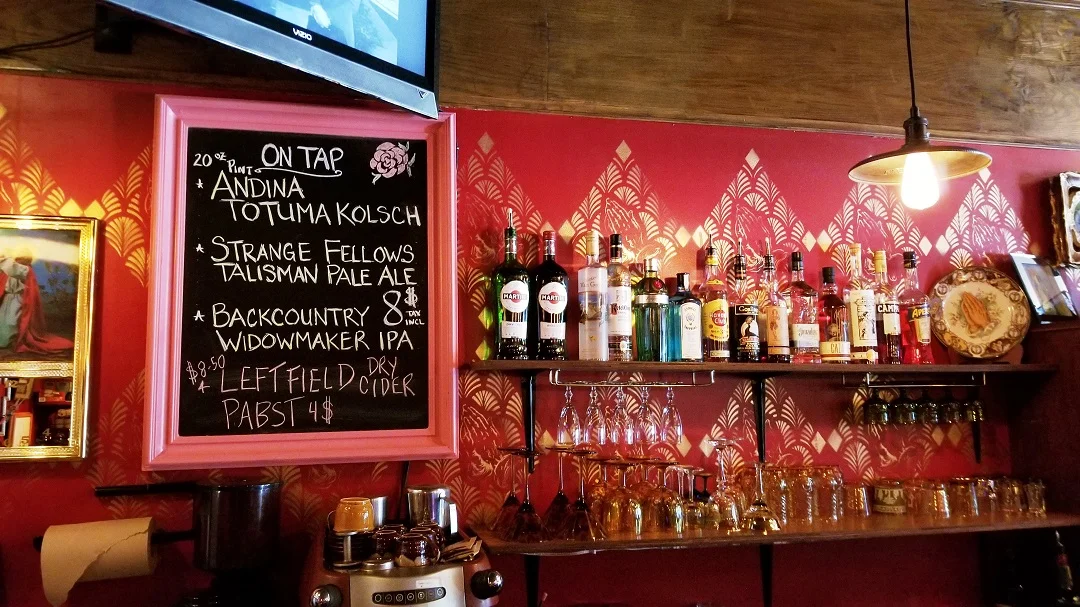 VIZIO
ON TAP
20 oz PINTS
* ANDINA
TOTUMA KOLSCH
* STRANGE FELLOWS
TALISMAN PALE ALE
8$
TAX
INCL
* BACKCOUNTRY
WIDOWMAKER IPA
$8.50
* LEFTFIELD DRY
CIDER
PABST 4$
MARTINI
MARTINI